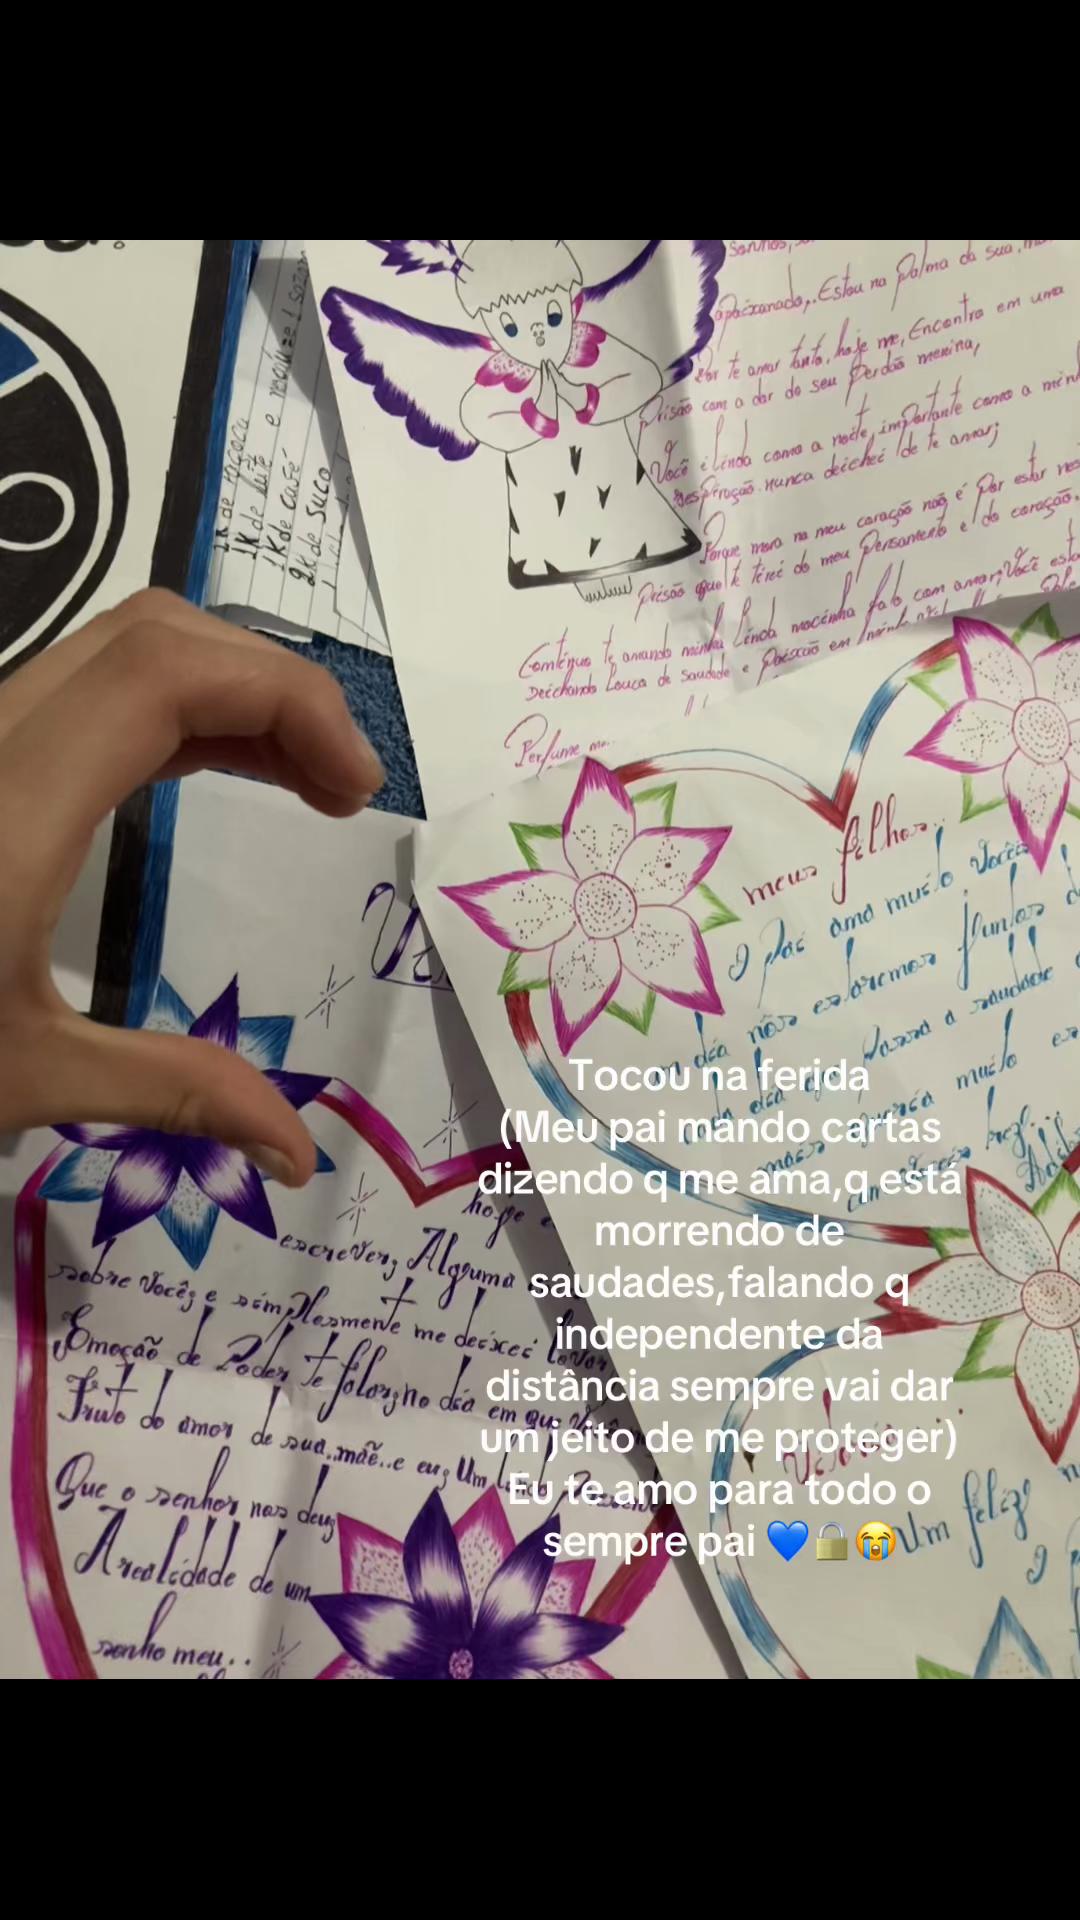 1K de
1K de leite e
1K de café
2K de suco
apaixonado,. Estou na Palma da sua
Por te amar tanto, hoje me, Encontro em uma
Prisão com a dor do seu Perdão menina,
Você é linda como a noite, importante como a minh
nunca deichei de te amar;
Porque mora no meu coração não é Por estar nes
Prisão que te tirei do meu Pensamento e do coração.
te amando minha Linda mocinha falo com amor; Você esta
Deichando Louca de Saudade e Paixão em
Perfume
meus filhos..
O Pai ama muito Vocês
um dia nós estaremos juntos
cada dia que passa a saudade
mais queria muito es
com vocês
hoje e
escrever; Alguma
sobre você; e simplesmente me deixei levar
Emoção de Poder te falar; no dia em que
Fruto do amor de sua..mãe..e eu; Um
Que o senhor nos deu;
A realidade de um
sonho meu..
Um feliz
O
Tocou na ferida
(Meu pai mando cartas
dizendo q me ama,q está
morrendo de
saudades,falando q
independente da
distância sempre vai dar
um jeito de me proteger)
Eu te amo para todo o
sempre pai 💙🔒😭